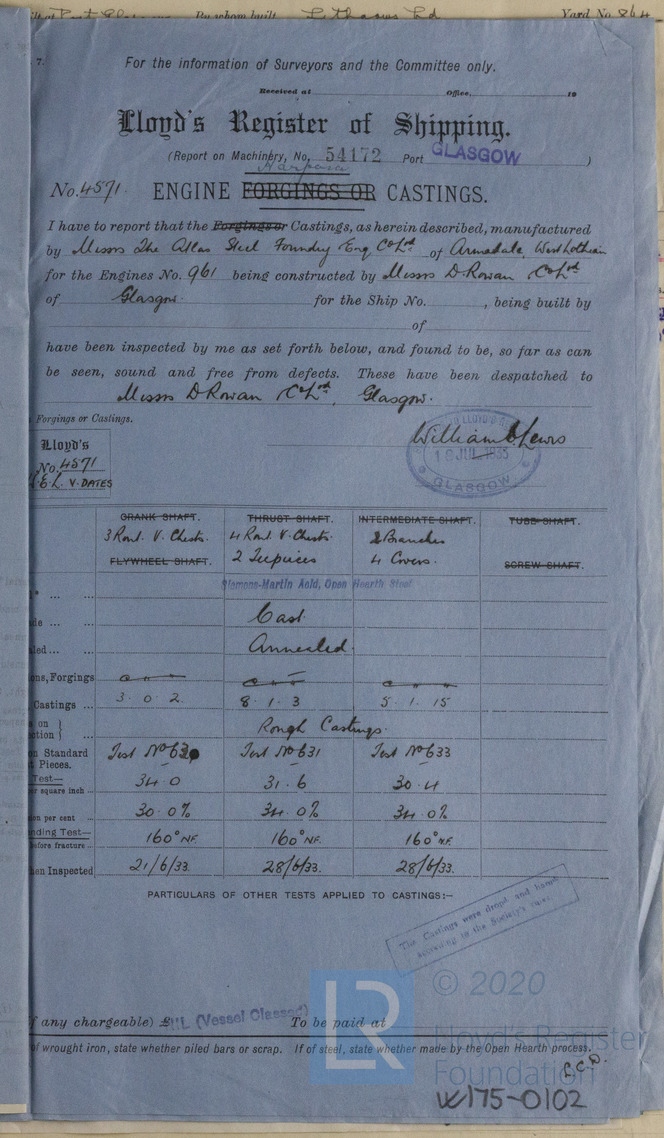 Port Glasgow By whom built Lithgows Ld Yard No. 864
7.
For the information of Surveyors and the Committee only.
Received at Office, 19
Lloyd's Register of Shipping.
(Report on Machinery, No. 54172 Port GLASGOW )
Harpasa
No. 4571. ENGINE FORGINGS OR CASTINGS.
I have to report that the Forgings or Castings, as herein described, manufactured
by Messrs The Atlas Steel Foundry Eng Co Ld of Armadale, West Lothian
for the Engines No. 961 being constructed by Messrs D Rowan Co Ld
of Glasgow. for the Ship No. , being built by
of
have been inspected by me as set forth below, and found to be, so far as can
be seen, sound and free from defects. These have been despatched to
Messrs D Rowan Co Ld, Glasgow.
Forgings or Castings.
William Lewis
GLASGOW
Lloyd's
No. 4571
V. DATES
CRANK SHAFT. THRUST SHAFT. INTERMEDIATE SHAFT. TUBE SHAFT.
3 Rect. V. Chests. 4 Rect V. Chests. 2 Branches
FLYWHEEL SHAFT. 2 Teepieces 4 Covers. SCREW SHAFT.
Siemens-Martin Acid, Open Hearth Steel
Cast
Annealed.
Forgings
Castings ... 3. 0. 2. 8. 1. 3 5. 1. 15
Rough Castings.
Standard Pieces. Test No 630 Test No 631 Test No 633
Test— per square inch 34.0 31.6 30.4
per cent 30.0% 34.0% 34.0%
Test— before fracture 160° NF. 160° NF. 160° NF.
Inspected 21/6/33. 28/6/33. 28/6/33.
PARTICULARS OF OTHER TESTS APPLIED TO CASTINGS:—
The Castings were dropd and hamd
according to the Society's rules.
if any chargeable) £ NIL (Vessel Classed) To be paid at
of wrought iron, state whether piled bars or scrap. If of steel, state whether made by the Open Hearth process.
LR
© 2020
Lloyd's Register
Foundation
W175-0102